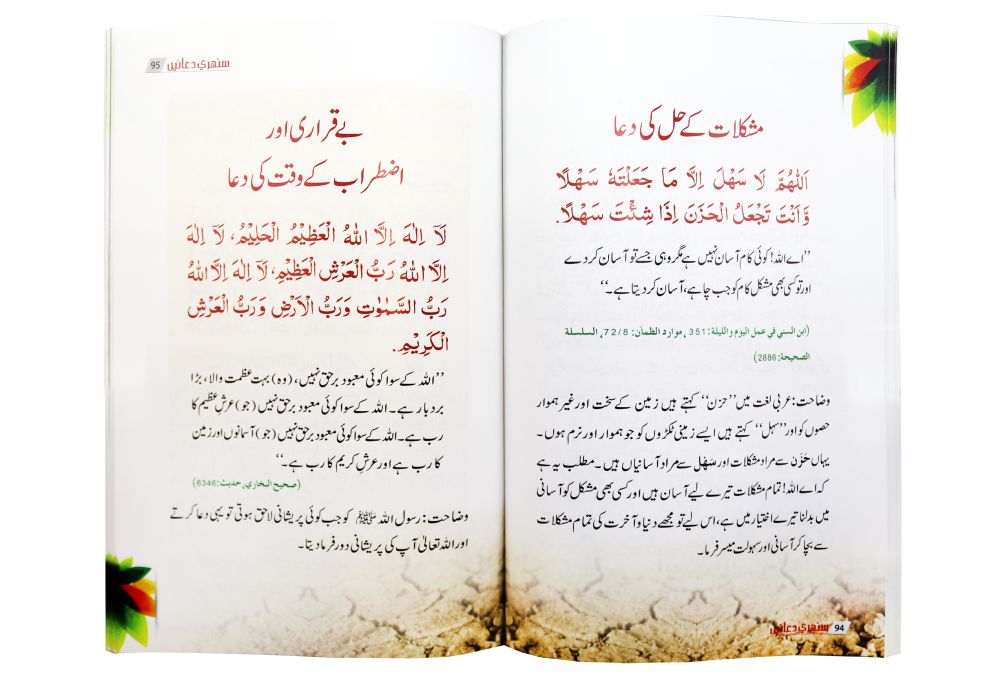 مشکلات کے حل کی دعا
اَللّٰهُمَّ لَا سَهْلَ اِلَّا مَا جَعَلْتَهٗ سَهْلًا
وَّاَنْتَ تَجْعَلُ الْحَزَنَ اِذَا شِئْتَ سَهْلًا.
’’اے اللہ! کوئی کام آسان نہیں ہے مگر وہی جسے تو آسان کر دے
اور تو کسی بھی مشکل کام کو جب چاہے، آسان کر دیتا ہے۔‘‘
(ابن السني في عمل اليوم والليلة: 351، موارد الظمآن: 72/8، السلسلة
الصحيحة: 2886)
وضاحت: عربی لغت میں ’’حزن‘‘ کہتے ہیں زمین کے سخت اور غیر ہموار
حصوں کو اور ’’سہل‘‘ کہتے ہیں ایسے زمینی ٹکڑوں کو جو ہموار اور نرم ہوں۔
یہاں حَزَن سے مراد مشکلات اور سَهْل سے مراد آسانیاں ہیں۔ مطلب یہ ہے
کہ اے اللہ! تمام مشکلات تیرے لیے آسان ہیں اور کسی بھی مشکل کو آسانی
میں بدلنا تیرے اختیار میں ہے، اس لیے تو مجھے دنیا و آخرت کی تمام مشکلات
سے بچا کر آسانی اور سہولت میسر فرما۔
94 سنهري دعائیں
95 سنهري دعائیں
بے قراری اور
اضطراب کے وقت کی دعا
لَآ اِلٰهَ اِلَّا اللهُ الْعَظِيْمُ الْحَلِيْمُ، لَآ اِلٰهَ
اِلَّا اللهُ رَبُّ الْعَرْشِ الْعَظِيْمِ، لَآ اِلٰهَ اِلَّا اللهُ
رَبُّ السَّمٰوٰتِ وَرَبُّ الْاَرْضِ وَرَبُّ الْعَرْشِ
الْكَرِيْمِ.
’’اللہ کے سوا کوئی معبود برحق نہیں، (وہ) بہت عظمت والا، بڑا
بردبار ہے۔ اللہ کے سوا کوئی معبود برحق نہیں (جو) عرشِ عظیم کا
رب ہے۔ اللہ کے سوا کوئی معبود برحق نہیں (جو) آسمانوں اور زمین
کا رب ہے اور عرشِ کریم کا رب ہے۔‘‘
(صحيح البخاري، حديث: 6346)
وضاحت: رسول اللہ ﷺ کو جب کوئی پریشانی لاحق ہوتی تو یہی دعا کرتے
اور اللہ تعالیٰ آپ کی پریشانی دور فرما دیتا۔